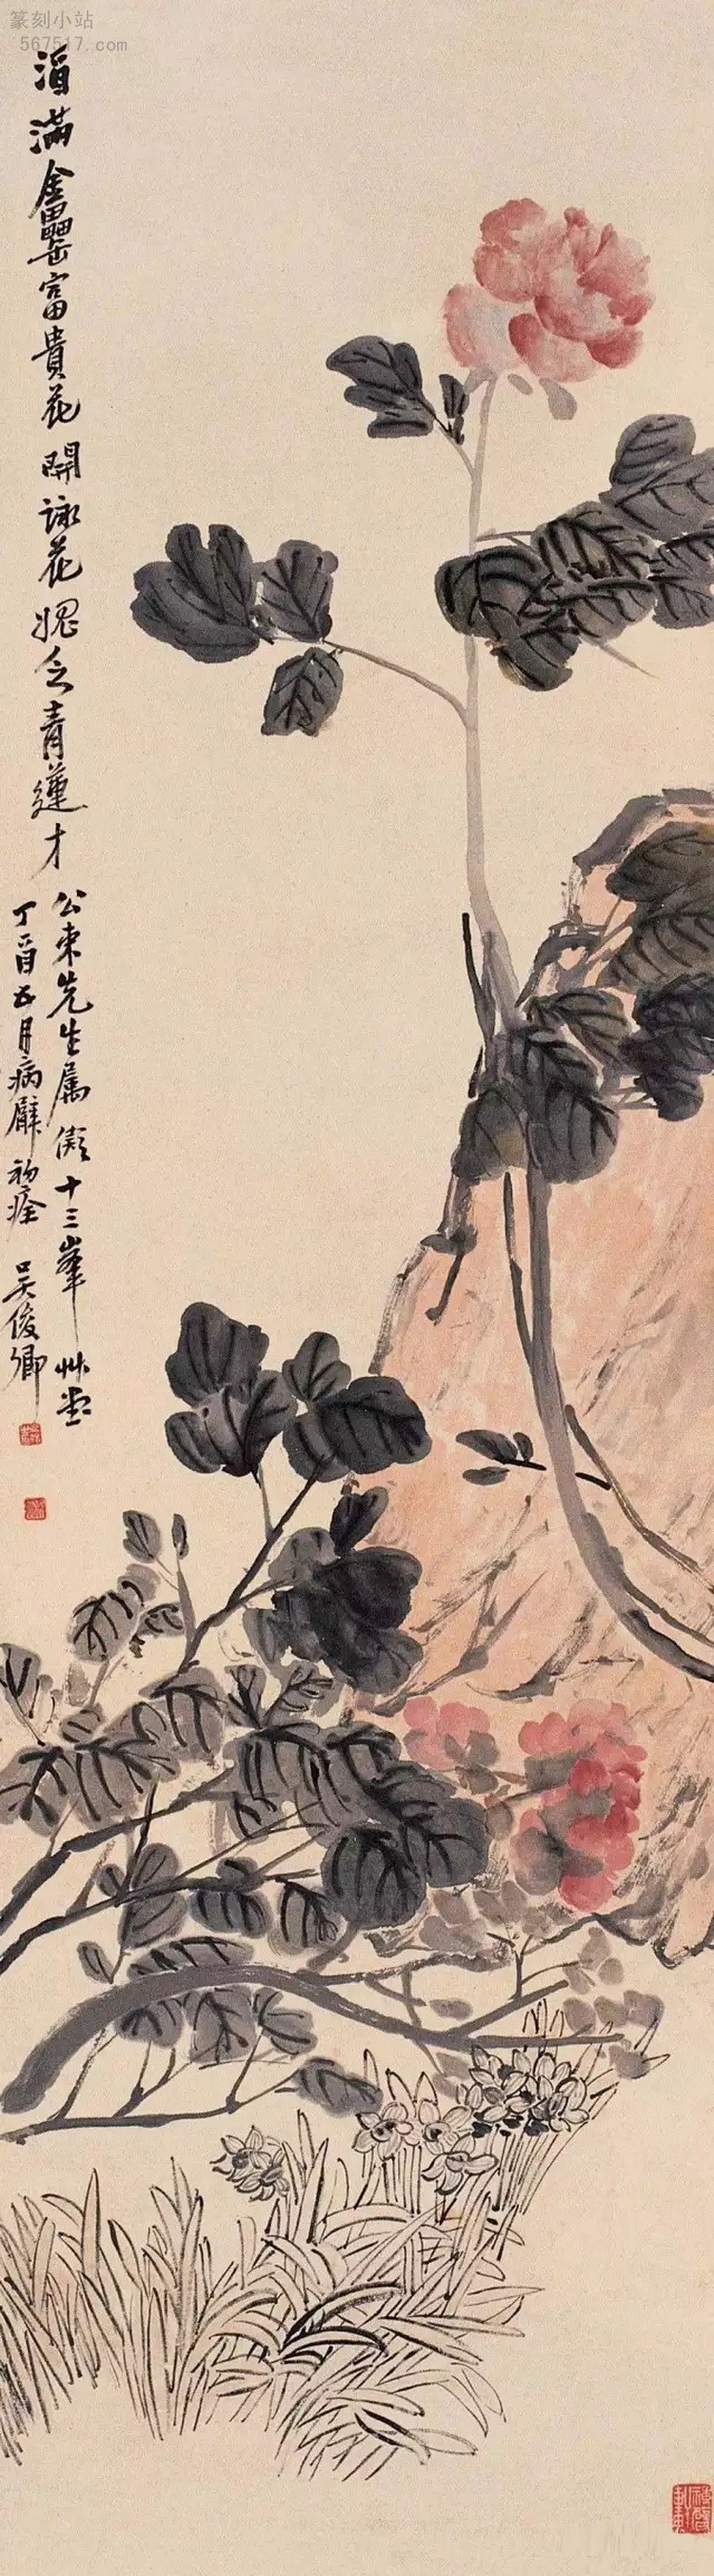 篆刻小站
567517.com
酒滿金罍富貴花開詠花媿乏青蓮才
公束先生属倣十三峯艸堂
丁酉五月病臂初痊 吴俊卿